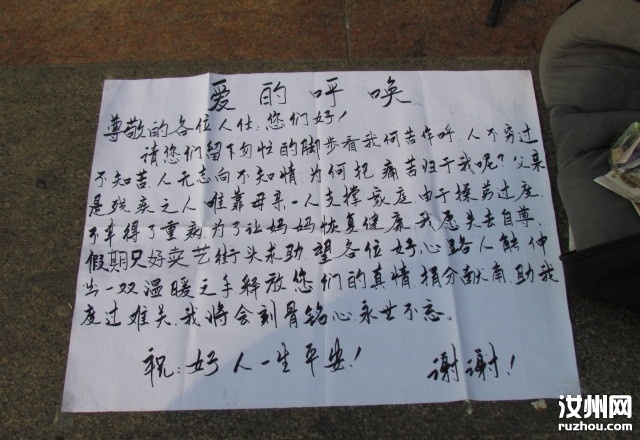 爱的呼唤
尊敬的各位人仕:您们好!
请您们留下匆忙的脚步看我何苦作呼,人不穷过
不知苦,人无志向不知情,为何把痛苦归于我呢?父亲
是残疾之人,唯靠母亲一人支撑家庭,由于操劳过度,
不幸得了重病,为了让妈妈恢复健康,我愿失去自尊
假期只好卖艺街头求助,望各位好心路人能伸
出一双温暖之手释放您们的真情,捐分献角,助我
度过难关,我将会刻骨铭心,永世不忘。
祝:好人一生平安! 谢谢!
汝州网
ruzhou.com